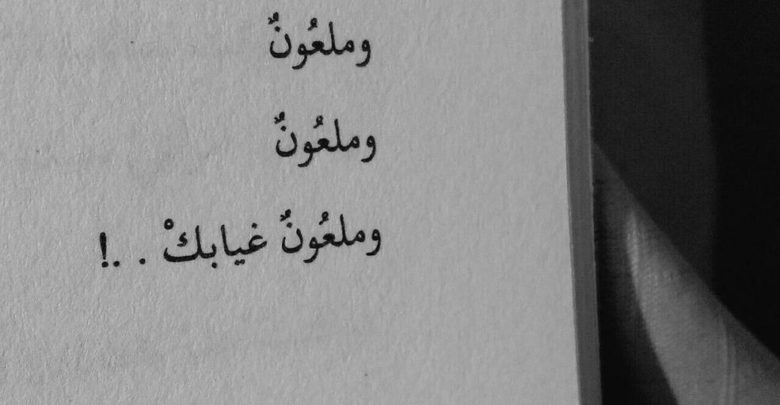 وملعُونٌ
وملعُونٌ
وملعُونٌ غيابكْ . .!